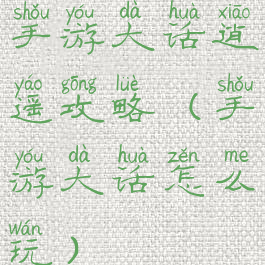 shǒu yóu dà huà xiāo
手游大话逍
yáo gōng lüè shǒu
遥攻略（手
yóu dà huà zěn me
游大话怎么
wán
玩）